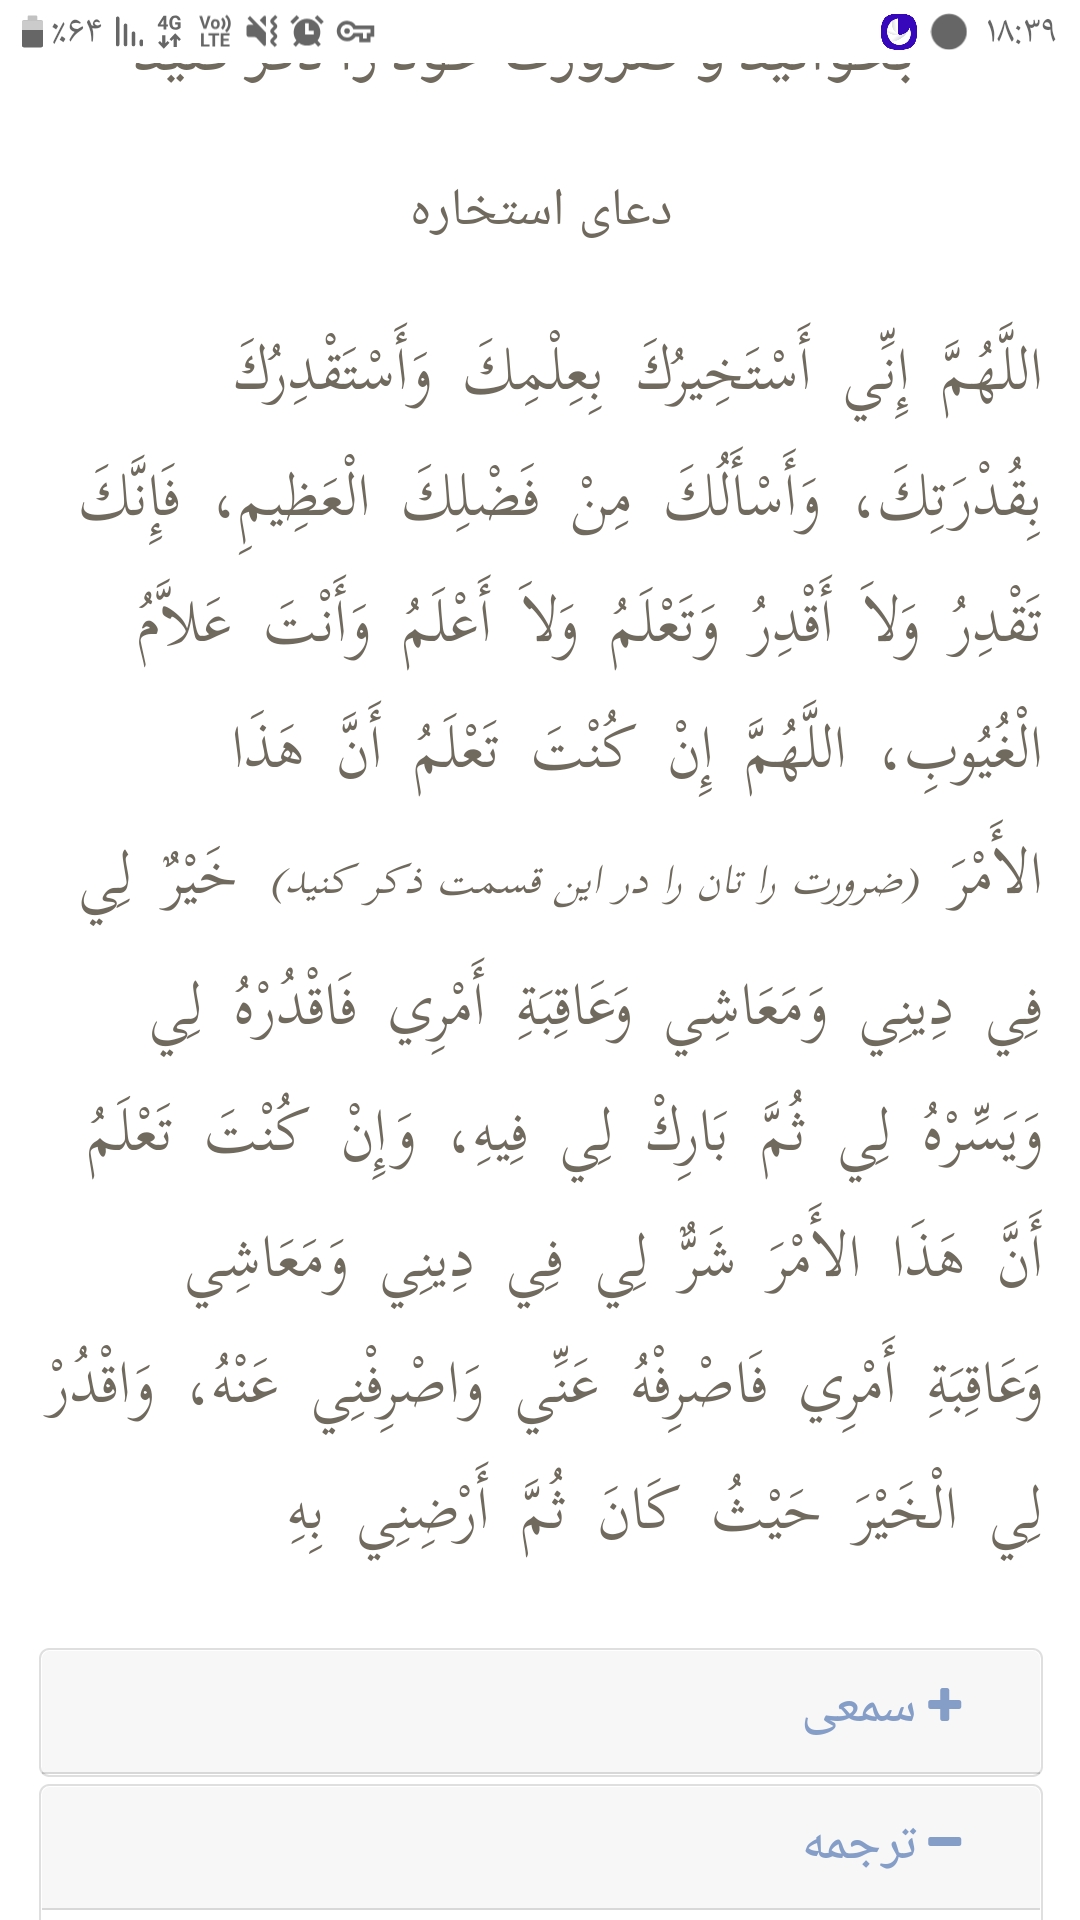 ٪۶۴ 4G Vo)) LTE ۱۸:۳۹
دعای استخاره
اللَّهُمَّ إِنِّي أَسْتَخِيرُكَ بِعِلْمِكَ وَأَسْتَقْدِرُكَ
بِقُدْرَتِكَ، وَأَسْأَلُكَ مِنْ فَضْلِكَ الْعَظِيمِ، فَإِنَّكَ
تَقْدِرُ وَلاَ أَقْدِرُ وَتَعْلَمُ وَلاَ أَعْلَمُ وَأَنْتَ عَلاَّمُ
الْغُيُوبِ، اللَّهُمَّ إِنْ كُنْتَ تَعْلَمُ أَنَّ هَذَا
الأَمْرَ (ضرورت را تان را در این قسمت ذکر کنید) خَيْرٌ لِي
فِي دِينِي وَمَعَاشِي وَعَاقِبَةِ أَمْرِي فَاقْدُرْهُ لِي
وَيَسِّرْهُ لِي ثُمَّ بَارِكْ لِي فِيهِ، وَإِنْ كُنْتَ تَعْلَمُ
أَنَّ هَذَا الأَمْرَ شَرٌّ لِي فِي دِينِي وَمَعَاشِي
وَعَاقِبَةِ أَمْرِي فَاصْرِفْهُ عَنِّي وَاصْرِفْنِي عَنْهُ، وَاقْدُرْ
لِي الْخَيْرَ حَيْثُ كَانَ ثُمَّ أَرْضِنِي بِهِ
سمعی
ترجمه